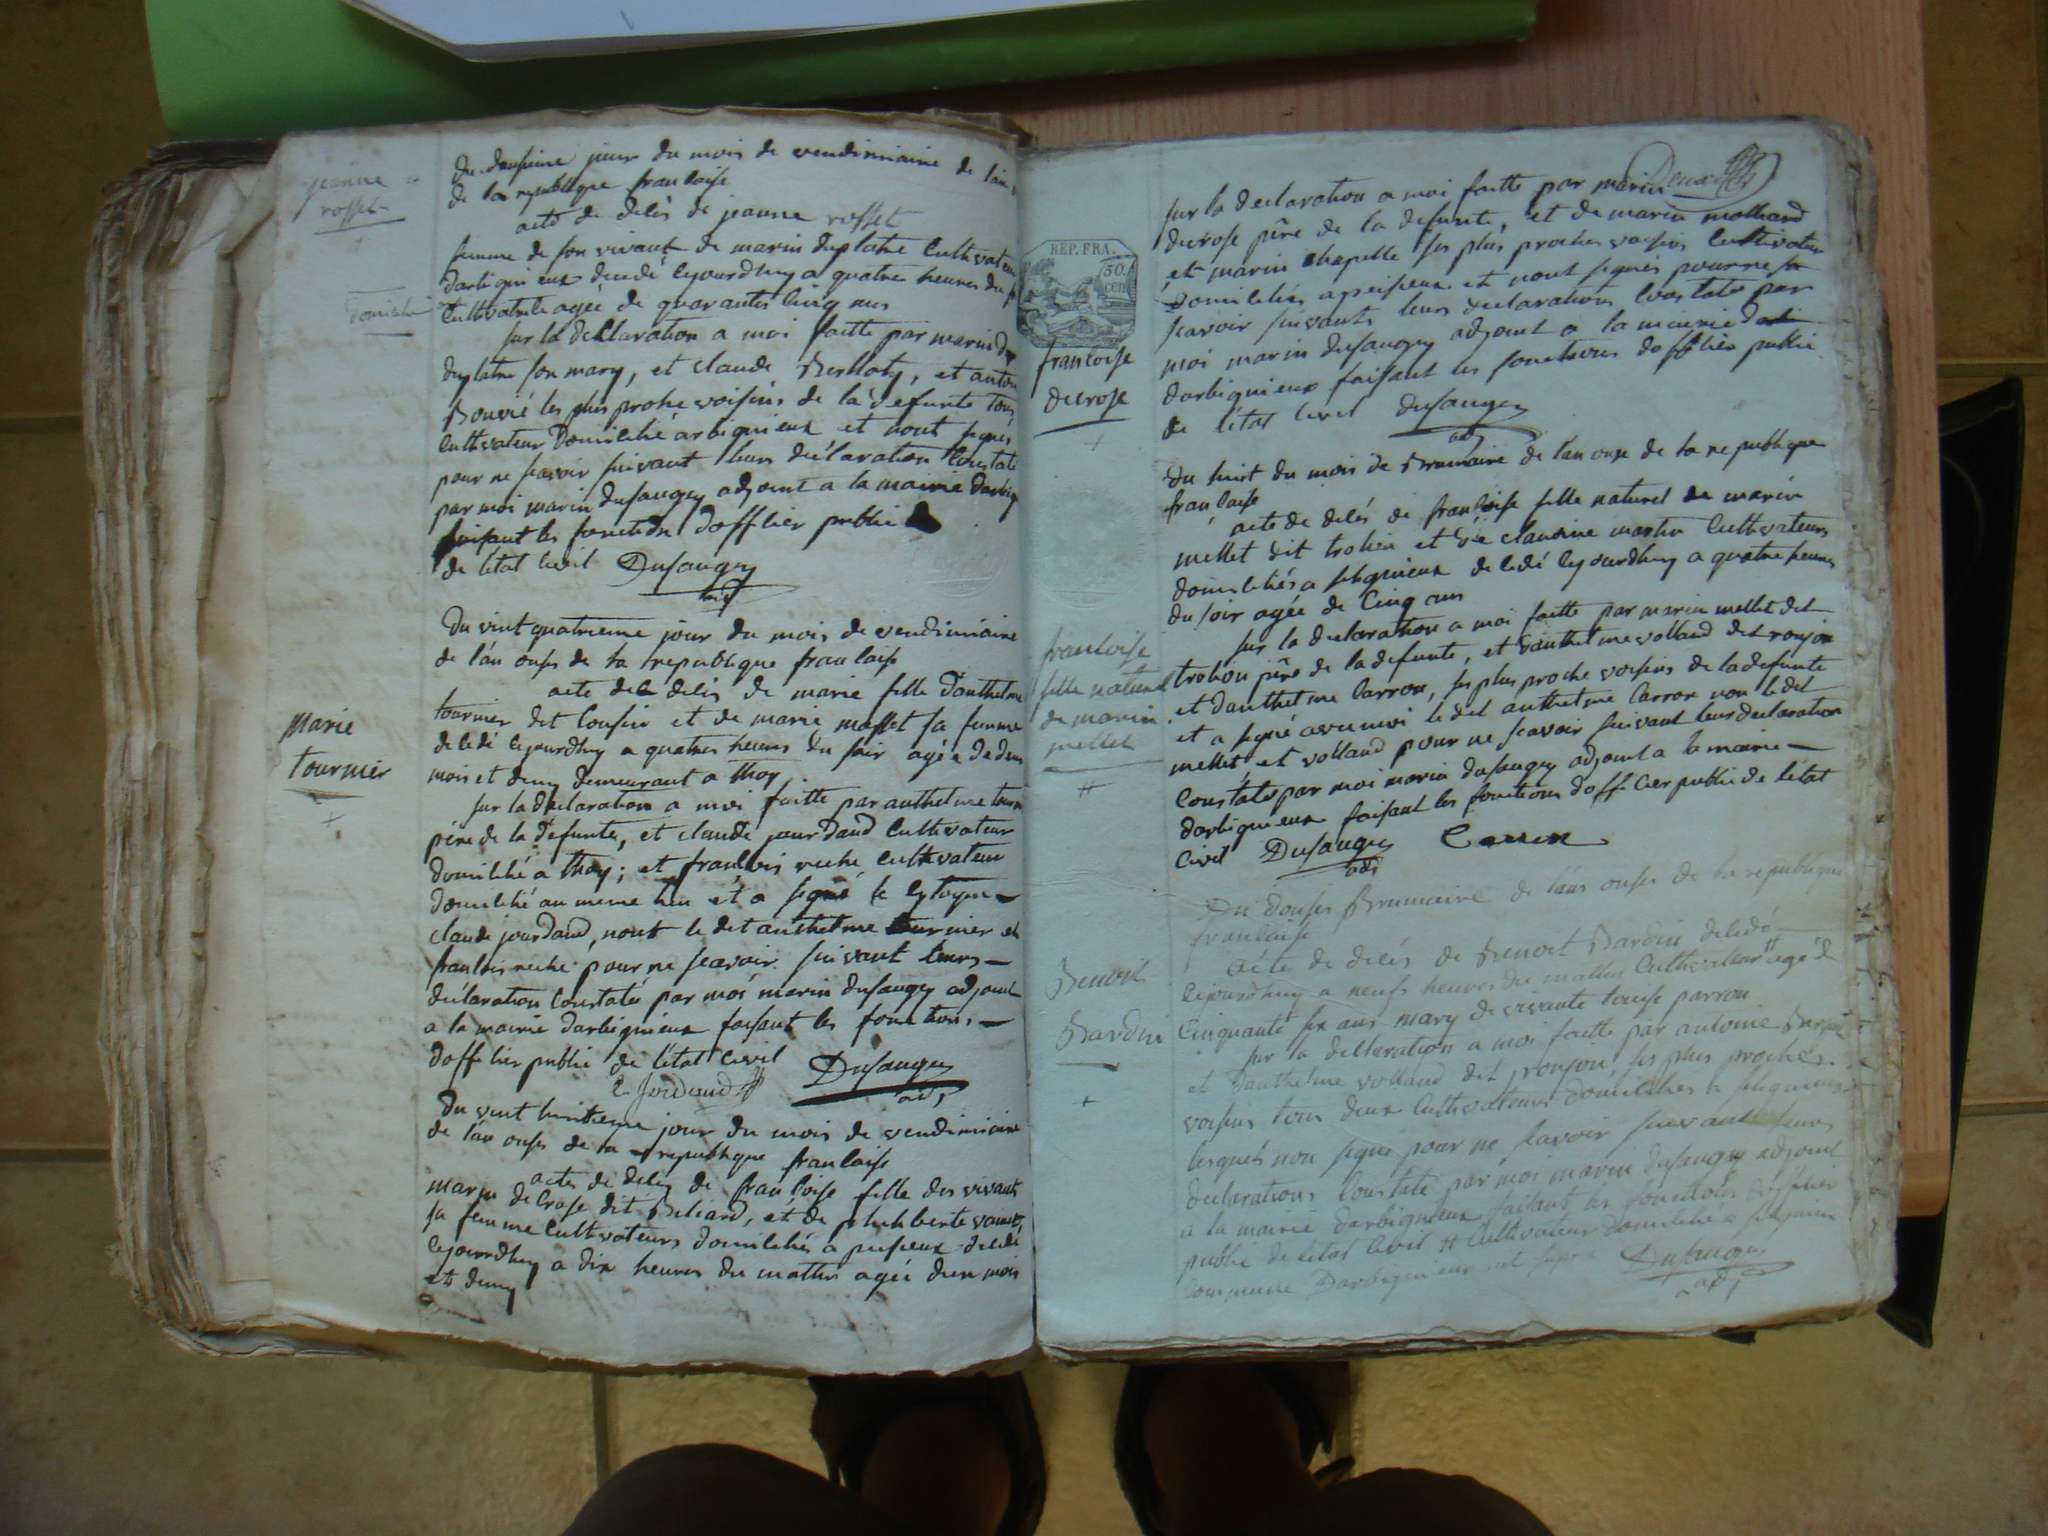 jeanne
rosset
Du dousieme jour du mois de vendimiaire de l'an
de la republique francaise
acte de décès de jeanne rosset
femme de son vivant de marin duplatre Cultivateur
darbignieux décédé cejourdhuy a quatre heures du
domicilié
Cultivatrice agée de quarante Cinq ans
sur la declaration a moi faitte par marin
duplatre son mary, et claude Berthoty, et antoine
Bouvié les plus proche voisins de la défunte tous
Cultivateur Domicilié arbignieux et nont signés
pour ne scavoir suivant leurs déclaration Constaté
par moi marin dusaugey adjoint a la mairie darbig
faisant les fonction dofficier public
de l'état civil Dusaugey
adj
Du vint quatrieme jour du mois de vendimiaire
de l'an onse de la republique francaise
acte de décès de marie fille danthelme
tournier dit Cousin et de marie masset sa femme
Marie
tournier
décédé cejourdhuy a quatres heures du soir agée de deux
mois et demy demeurant a thoy
sur la declaration a moi faitte par anthelme tournier
père de la defunte, et claude jourdand Cultivateur
domicilié a thoy; et francois reche Cultivateur
domicilié au meme lieu et a signé le Cytoyen
claude jourdand, nont le dit anthelme tournier et
francois reche pour ne scavoir suivant leurs
déclaration Constatée par moi marin dusaugey adjoint
a la mairie darbignieux faisant les fonctions
dofficier public de l'état civil Dusaugey
C. Jourdand adj
Du vint huitieme jour du mois de vendimiaire
de l'an onse de la republique francaise
actes de décès de francoise fille des vivants
marin decrose dit Beliard, et de philiberte
sa femme Cultivateurs domiciliés a peisieux décédé
cejourdhuy a dix heures du mattin agée dun mois
et demy
Deux
sur la declaration a moi faitte par marin
decrose père de la defunte, et de marin molliard
et marin chapelle ses plus proches voisins Cultivateur
domiciliés a peisieux et nont signés pour ne
scavoir suivants leurs declarations Constatée par
moi marin dusaugey adjoint a la mairie
darbignieux faisant les fonctions dofficier public
de l'état civil Dusaugey
adj
REP. FRA.
50.
cen
francoise
decrose
Du huit du mois de Brumaire de l'an onse de la republique
francaise
acte de décés de francoise fille naturel de marin
mellet dit trolion et de claudine martin Cultivateurs
domiciliés a selignieux décédé cejourdhuy a quatre heures
du soir agée de Cinq ans
francoise
fille naturel
de marin
mellet
sur la declaration a moi faitte par marin mellet dit
trolion père de la defunte, et danthelme volland dit ronjon
et danthelme Carron, ses plus proche voisins de la defunte
et a signé avec moi le dit anthelme Carron non le dit
mellet, et volland pour ne scavoir suivant leur declaration
Constatée par moi marin dusaugey adjoint a la mairie
darbignieux faisant les fonctions dofficier public de l'état
civil Dusaugey Carron
adj
Du douses Brumaire de l'an onses de la republique
francaise
Benoit
Bardin
Acte de décés de Benoit Bardin décédé
cejourdhuy a neufs heures du mattin Cultivateur agé de
Cinquante six ans mary de vivante louise parron
sur la declaration a moi faitte par antoine
et danthelme volland dit ronjon, ses plus proches
voisins tous deux Cultivateurs domiciliés a selignieux
lesquels non signe pour ne scavoir suivant leurs
declarations Constaté par moi marin dusaugey adjoint
a la mairie darbignieux faisant les fonctions dofficier
public de l'état civil # Cultivateur domicilié a selignieux
Commune Darbignieux Dusaugey
adj